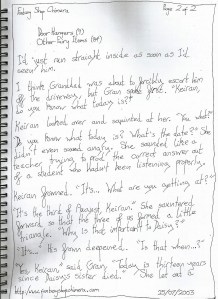 Today Shop Chimera Page 2 of 2
Door Hammers (4)
Other Fairy Items (44)
I'd just run straight inside as soon as I'd
seen him.
I think Granddad was about to forcibly escort him
off the driveway, but Gran spoke first. "Keiran,
do you know what today is?"
Keiran looked over and squinted at her. "You what?"
"Do you know what today is? What's the date?" She
didn't even sound angry. She sounded like a
teacher, trying to prod the correct answer out
of a student who hadn't been listening properly.
Keiran frowned. "It's... What are you getting at?"
"It's the third of August, Keiran." She sauntered
forward so that the three of us formed a little
triangle. "Why is that important to Daisy?"
"It..." His frown deepened. "Is that when...?"
"Yes, Keiran," said Gran. "Today is thirteen years
since Daisy's sister died." She let out a
25/07/2023